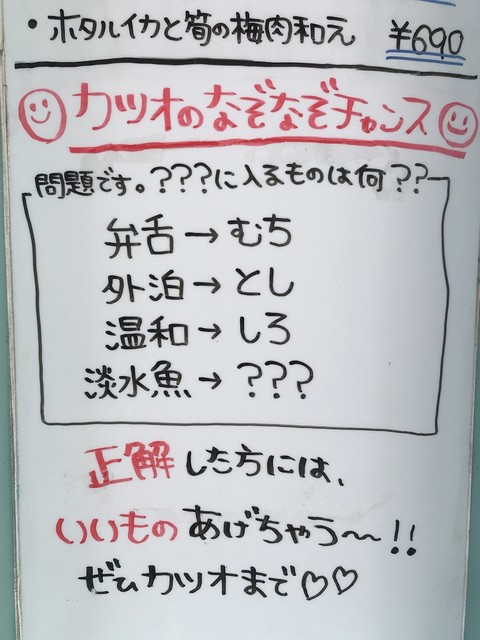 ・ホタルイカと筍の梅肉和え ¥690
カツオのなぞなぞチャンス
問題です。???に入るものは何??
弁舌→むち
外泊→とし
温和→しろ
淡水魚→???
正解した方には、
いいものあげちゃう〜!!
ぜひカツオまで♡♡